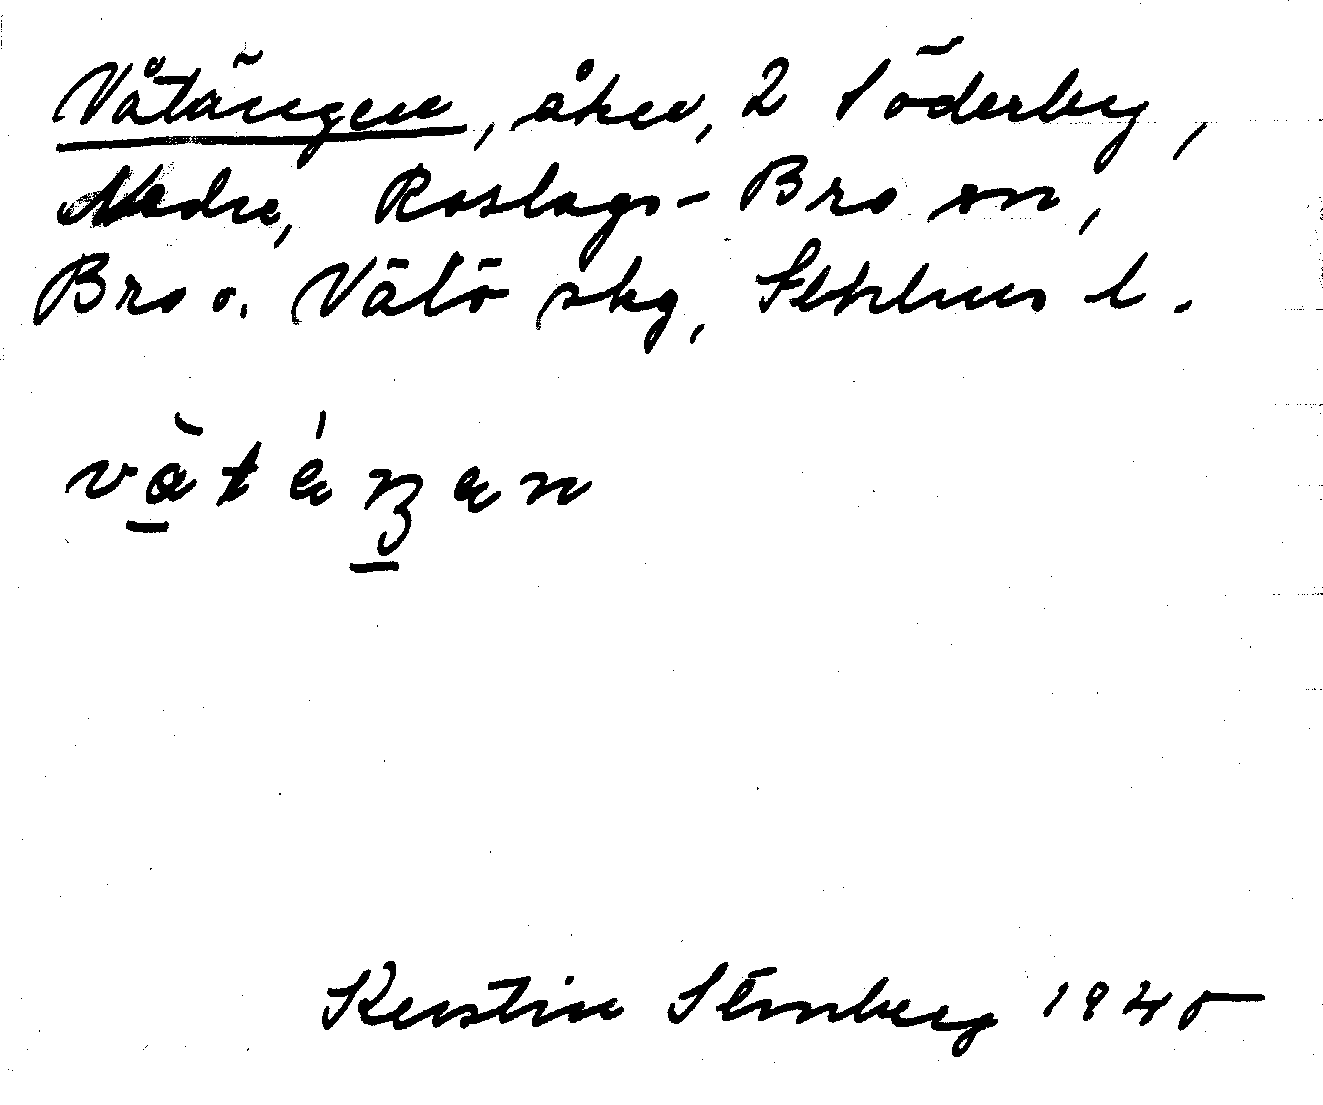 Våtängen, åker, 2 Söderby,
Nedre, Roslags-Bro sn,
Bro o. Vätö skg, Sthlms l.
Kerstin Stenberg 1945